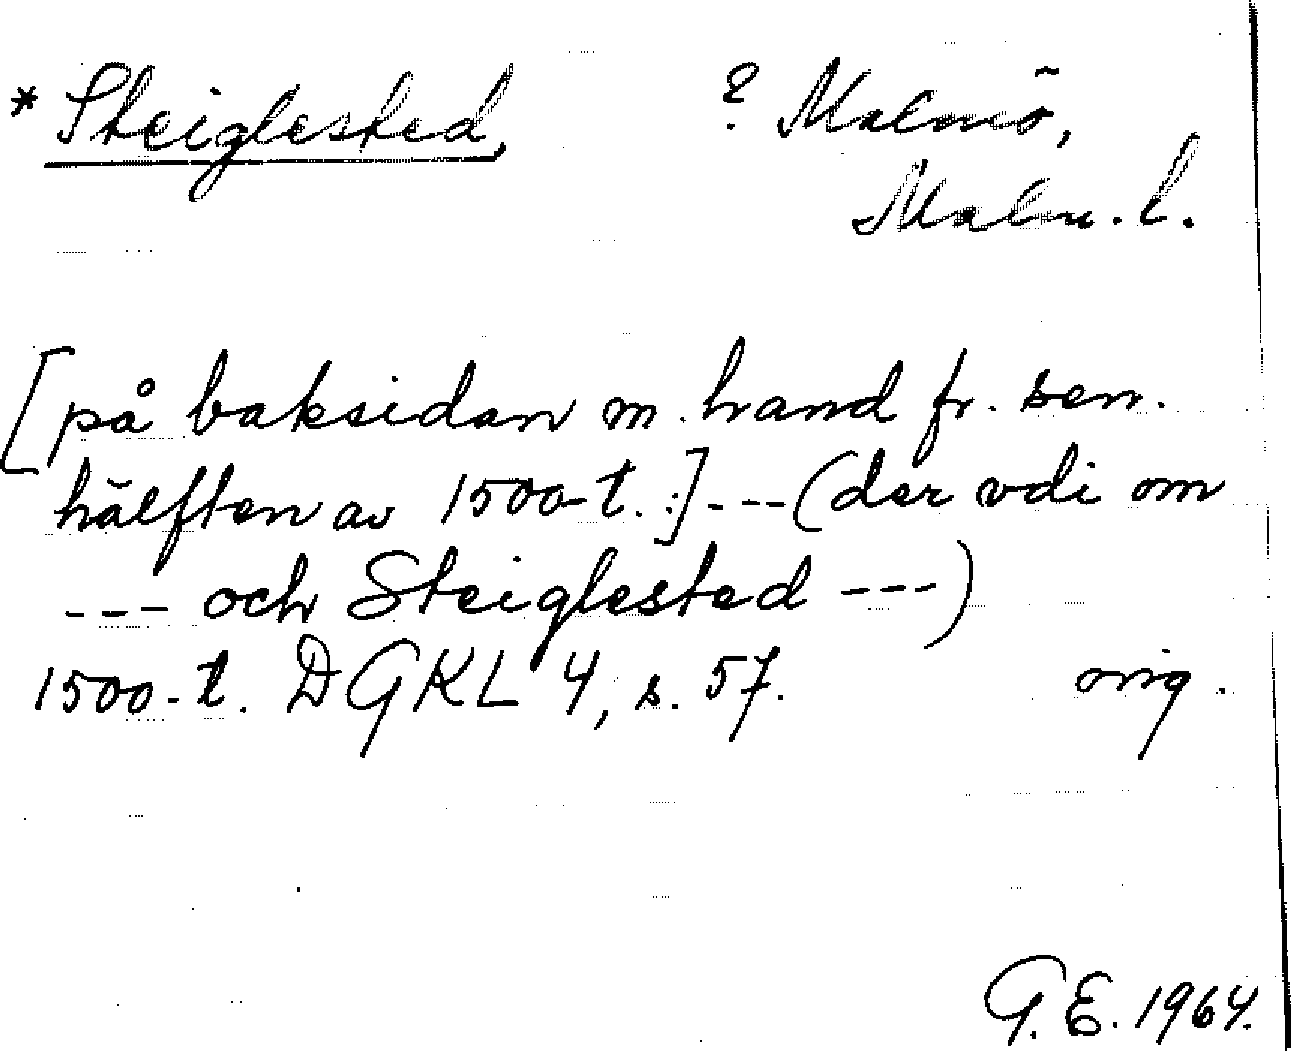 * Steiglested, ? Malmö,
Malm. l.
[på baksidan m. hand fr. sen.
hälften av 1500-t.:] --- (der vdi om
--- och Steiglested ---)
1500-t. DGKL 4, s. 57. orig.
G. E. 1964.